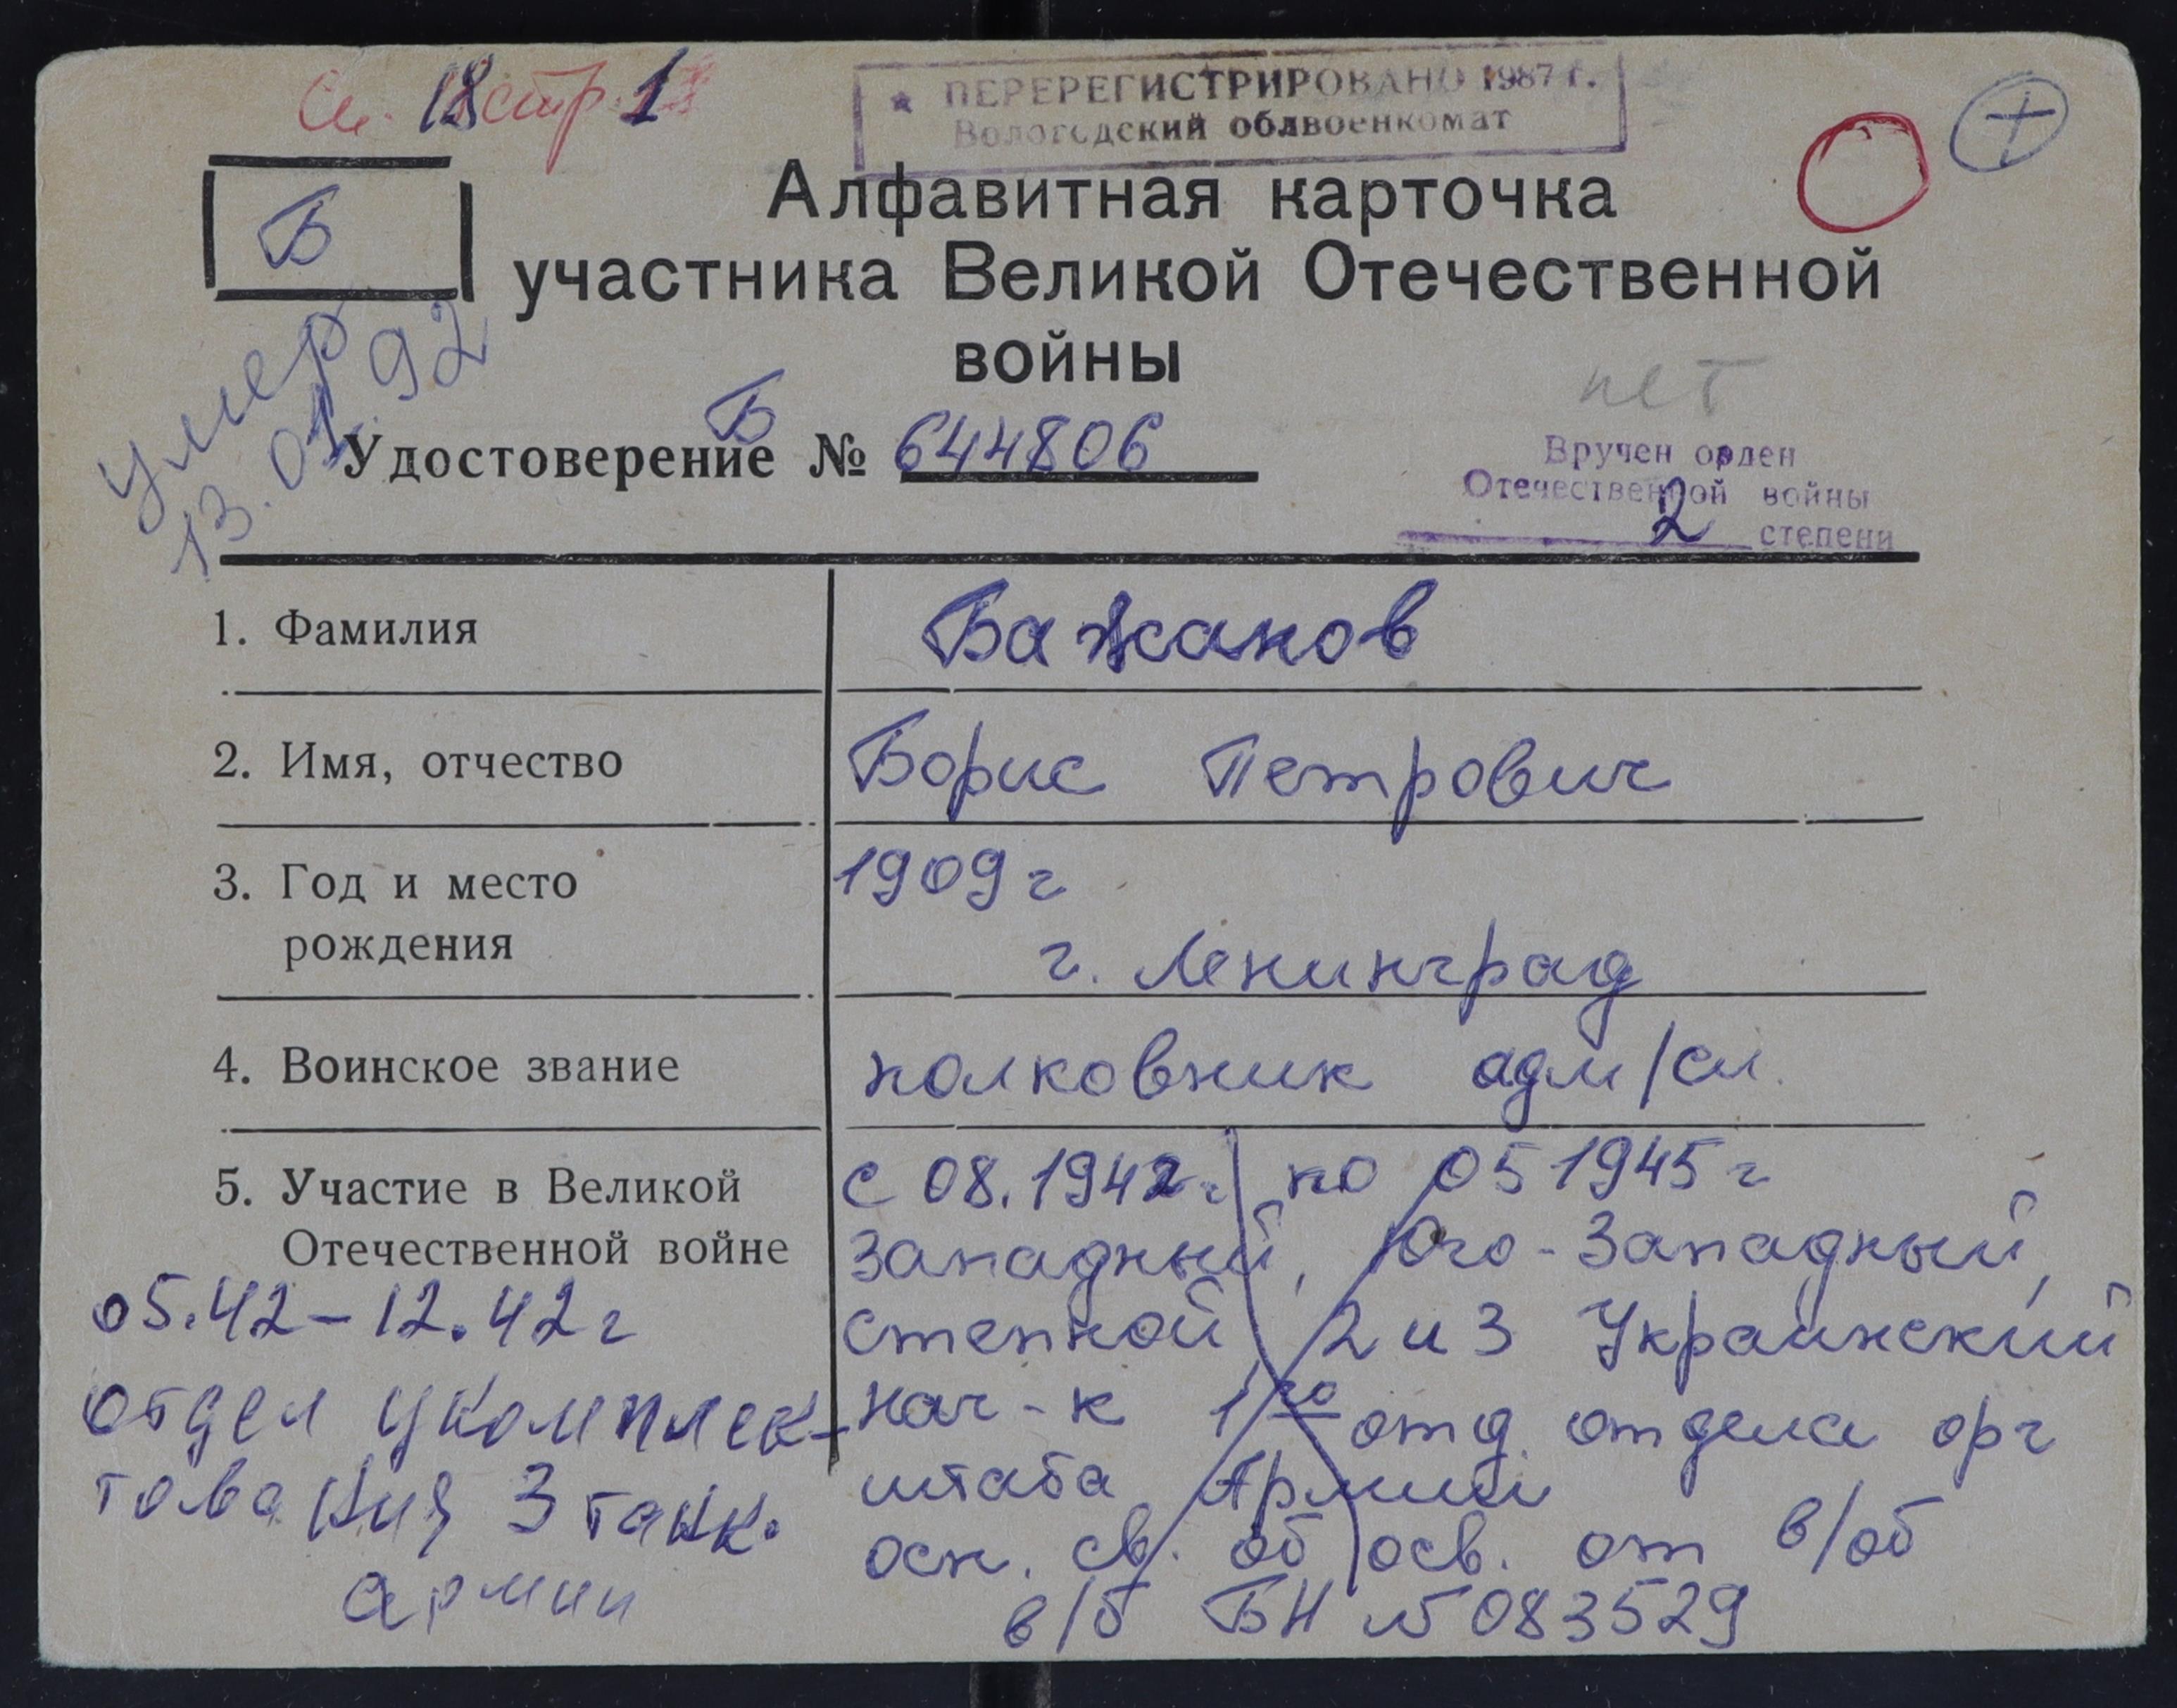 См. 18 стр. 1
ПЕРЕРЕГИСТРИРОВАНО 1987 г.
Вологодский облвоенкомат
Б
Алфавитная карточка
участника Великой Отечественной
войны
умер
13.01.92
нет
Б
Удостоверение № 644806
Вручен орден
Отечественной войны
2 степени
1. Фамилия
Бажанов
2. Имя, отчество
Борис Петрович
3. Год и место
рождения
1909 г
г. Ленинград
4. Воинское звание
полковник адм/сл.
5. Участие в Великой
Отечественной войне
с 08.1942 г. по 05 1945 г
Западный, Юго-Западный,
степной, 2 и 3 Украинский
нач-к 1го отд. отдела орг
штаба Армии
осн. св. об осв. от в/об
в/б БН № 083529
05.42-12.42 г
отдел укомплек-
тования 3 танк.
армии